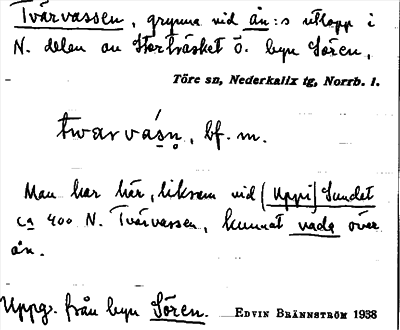 Tvärvassen, grynna vid ån:s utlopp i
N. delen av Storträsket Ö. byn Sören,
Töre sn, Nederkalix tg, Norrb. l.
twarvásn̥, bf. m.
Man har här, liksom vid (Uppi) Sundet
ca 400 N. Tvärvassen, kunnat vada över
ån.
Uppg. från byn Sören. EDVIN BRÄNNSTRÖM 1938